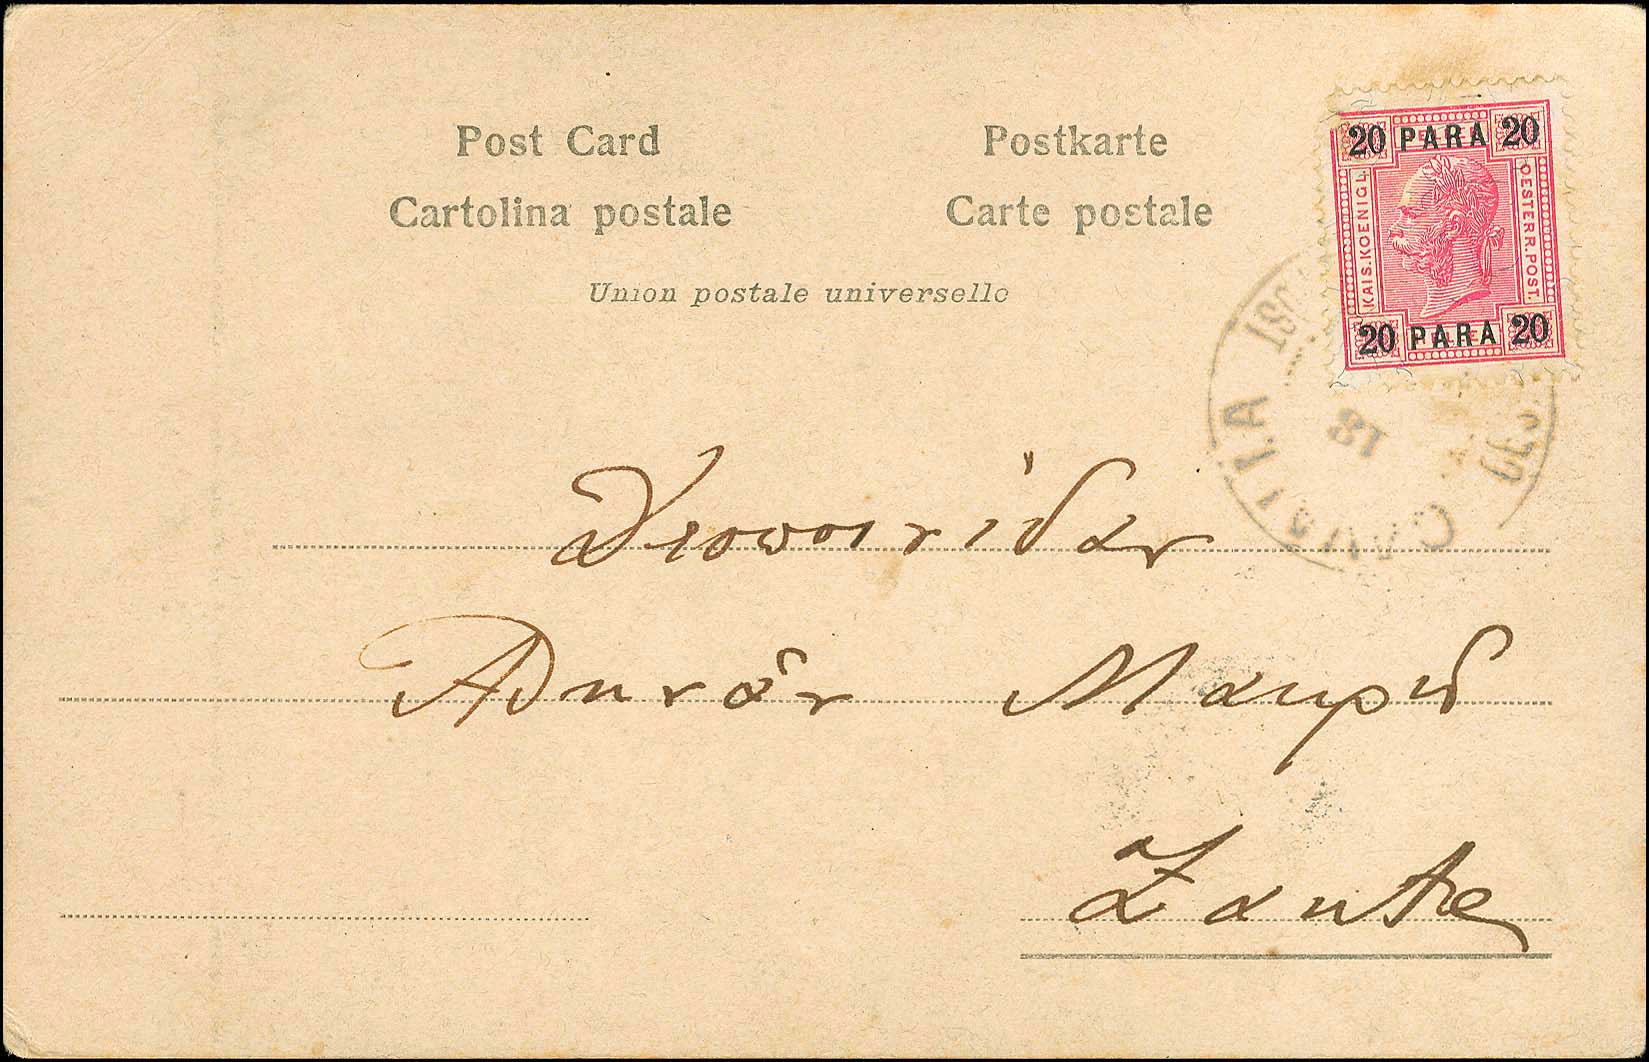 Post Card
Postkarte
Cartolina postale
Carte postale
Union postale universelle
20 PARA 20
KAIS. KOENIGL.
OESTERR. POST.
20 PARA 20
18
Δεσποινίδαν
Αθηνᾶν Μακρῆ
Zante